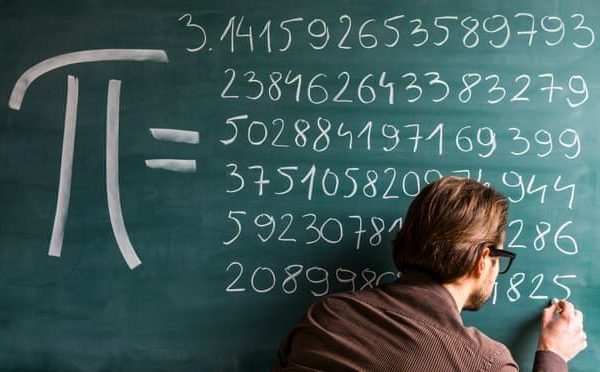 π =
3.141592653589793
238462643383279
502884197169399
375105820 944
5923078 286
208998 825